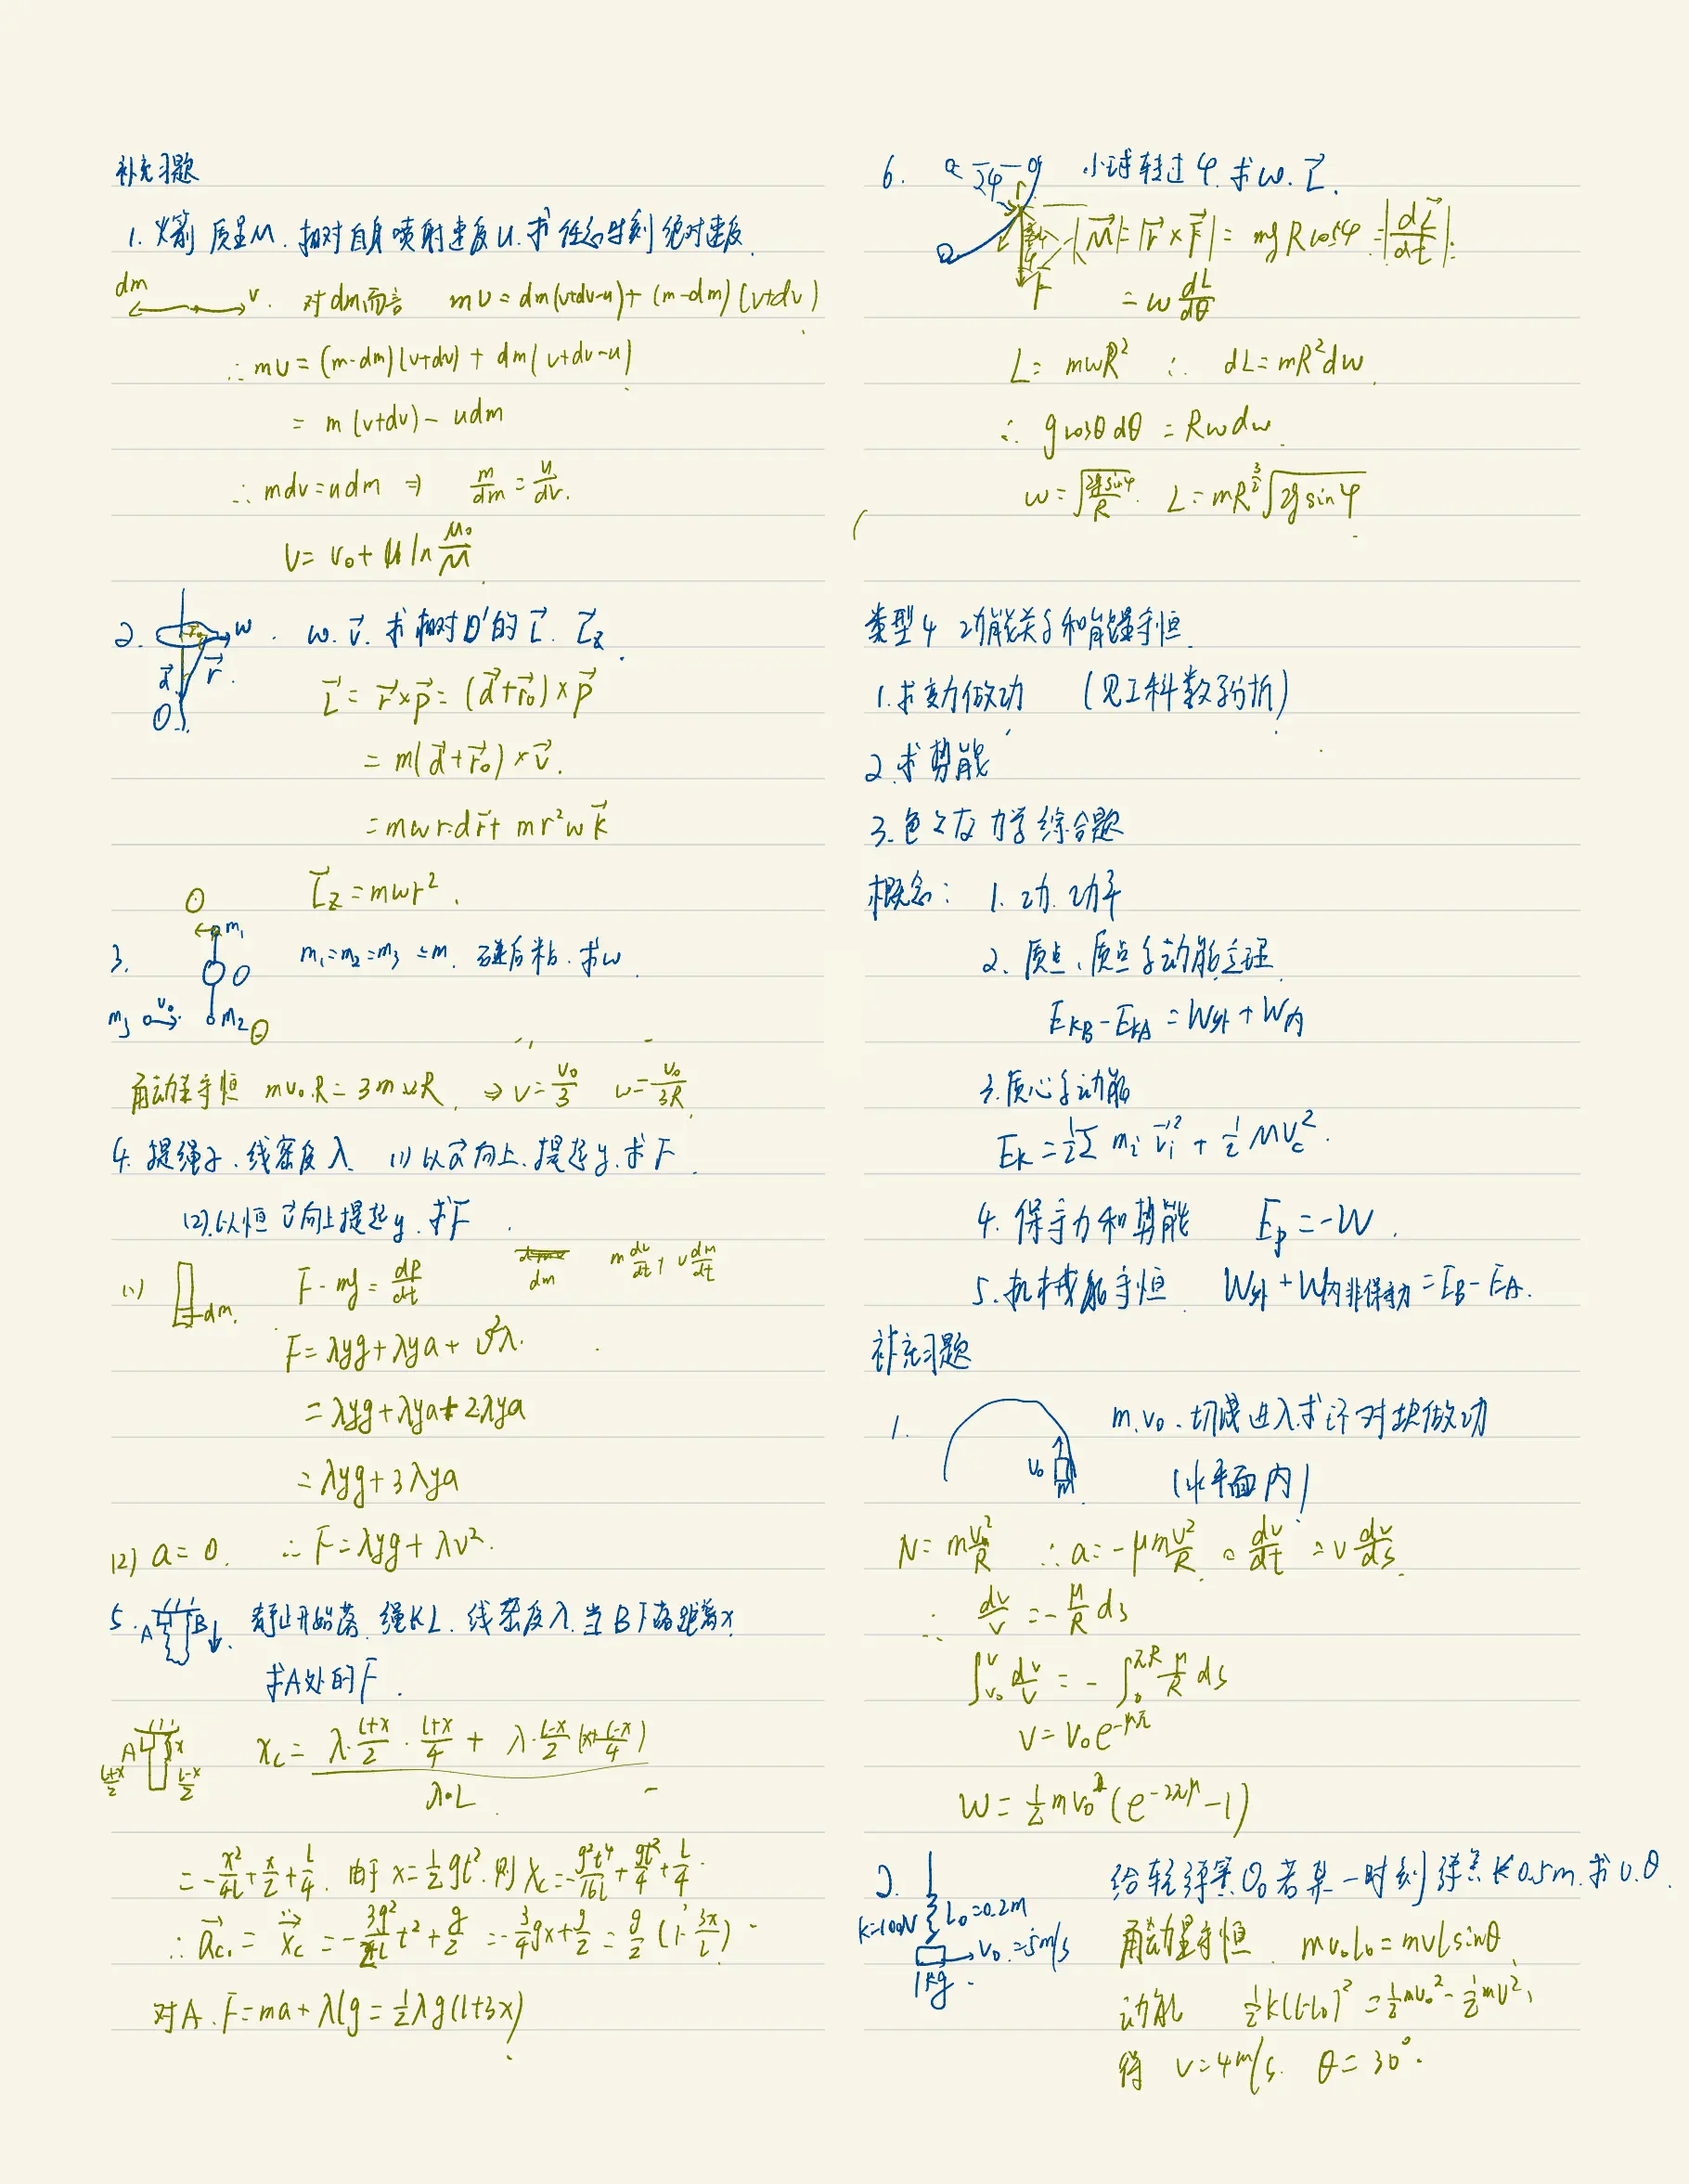 补充习题
1. 火箭 质量M. 相对自身喷射速度u. 求任意时刻绝对速度.
dm v. 对dm而言 mv = dm(v+dv-u) + (m-dm)(v+dv)
∴ mv = (m-dm)(v+dv) + dm(v+dv-u)
= m(v+dv) - udm
∴ mdv = udm ⇒ m/dm = u/dv.
v = v₀ + u ln M₀/M
2. w. w. v⃗. 求相对O'的L⃗. L⃗z
d⃗ r⃗. O L⃗ = r⃗×p⃗ = (d⃗+r⃗₀)×p⃗
= m(d⃗+r⃗₀)×v⃗.
= mwr·dr⃗ + mr²w k⃗
L⃗z = mwr².
3. m₁ O m₃ v₀ m₂ m₁=m₂=m₃=m. 碰后粘. 求w.
角动量守恒 mv₀·R = 3mvR. ⇒ v = v₀/3 w = v₀/3R.
4. 提绳子. 线密度λ. (1) 以a⃗向上. 提起y. 求F.
(2). 以恒v⃗向上提起y. 求F.
(1) dm. F - mg = dp/dt dm m dv/dt + v dm/dt
F = λyg + λya + v²λ.
= λyg + λya + 2λya
= λyg + 3λya
(2) a = 0. ∴ F = λyg + λv².
5. A B 静止开始落. 绳长L. 线密度λ. 当B下落距离x
求A处的F.
A x (L+x)/2 (L-x)/2 x_c = [λ·(L+x)/2·(L+x)/4 + λ·(L-x)/2(x+(L-x)/4)] / λ·L
= -x²/4L + x/2 + L/4. 由于x = ½gt². 则 x_c = -g²t⁴/16L + gt²/4 + L/4.
对A. F = ma + λlg = ½λg(l+3x)
6. 2φ 小球转过φ. 求w. L⃗.
|M⃗| = |r⃗×F⃗| = mgRcosφ = |dL⃗/dt|.
F = w dL/dθ
L = mwR² ∴ dL = mR²dw.
∴ gcosθdθ = Rwdw.
w = √(2gsinφ/R). L = mR^(3/2)√(2gsinφ)
类型4 功能关系和能量守恒
1. 求变力做功 (见工科数学分析)
2. 求势能
3. 力学综合题
概念: 1. 功. 功率
2. 质点、质点系动能定理
E_KB - E_KA = W外 + W内
3. 质心系动能
E_K = ½∑m_i v⃗_i'² + ½MV_c².
4. 保守力和势能 E_p = -W.
5. 机械能守恒 W外 + W内非保守力 = E_B - E_A.
补充习题
1. v₀ m m. v₀. 切线进入求对块做功
(水平面内)
N = m v²/R ∴ a = -μm v²/R = dv/dt = v dv/ds
∴ dv/v = -μ/R ds
∫_{v₀}^{v} dv/v = -∫_0^{πR} μ/R ds
v = v₀e^{-μπ}
W = ½mv₀²(e^{-2πμ} - 1)
2. k=100N L₀=0.2m v₀=5m/s 1kg. 给轻弹簧v₀ 若某一时刻弹簧长0.5m. 求v. θ.
角动量守恒 mv₀l₀ = mvlsinθ
动能 ½k(l-l₀)² = ½mv₀² - ½mv²
得 v = 4m/s. θ = 30°.